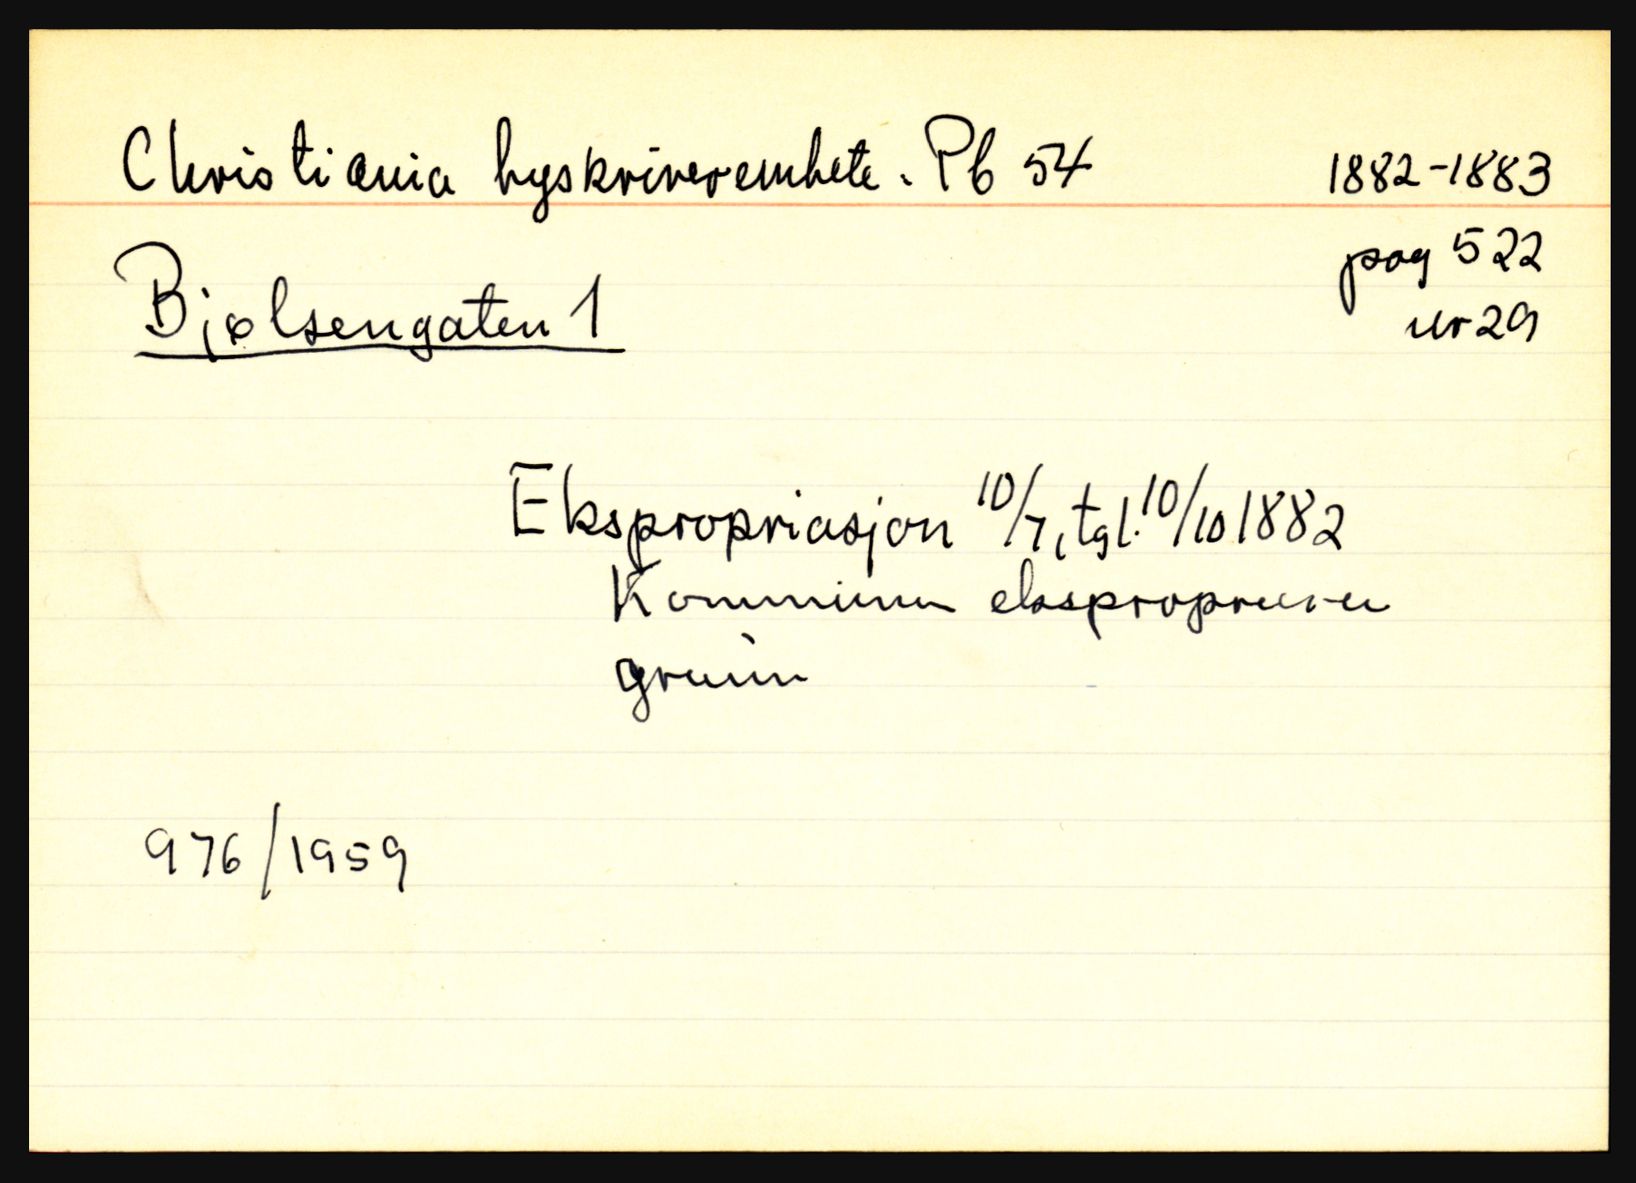 Christiania byskriverembete. Pb 54 1882-1883
pag 522
Bjølsengaten 1
nr 29
Ekspropriasjon 10/7, tgl. 10/10 1882
Kommunen eksproprierer
grunn
976/1959